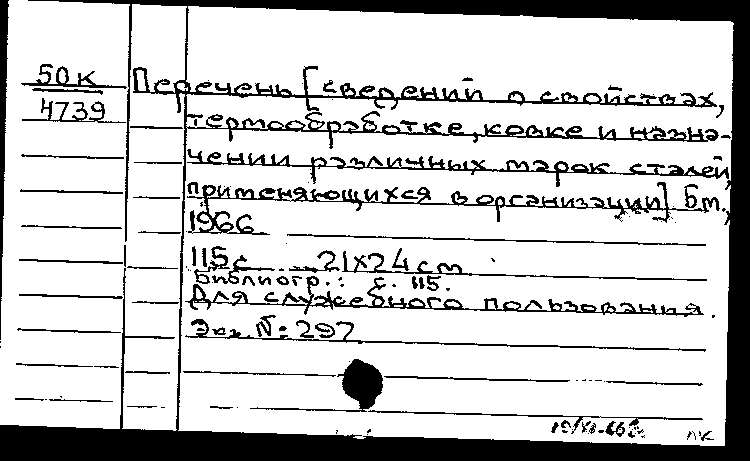 50к
4739
Перечень [сведений о свойствах,
термообработке, ковке и назна-
чении различных марок сталей,
применяющихся в организации] Б.м.,
1966
115с. 21х24 см
Библиогр.: с. 115.
Для служебного пользования.
Экз. №: 297
19/XI-66г.
лк